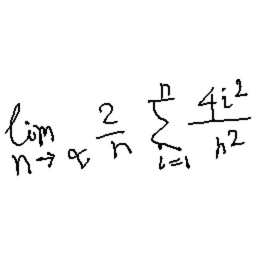 \lim_{n \to \propto} \frac{2}{n} \sum_{i=1}^{n} \frac{4i^2}{n^2}